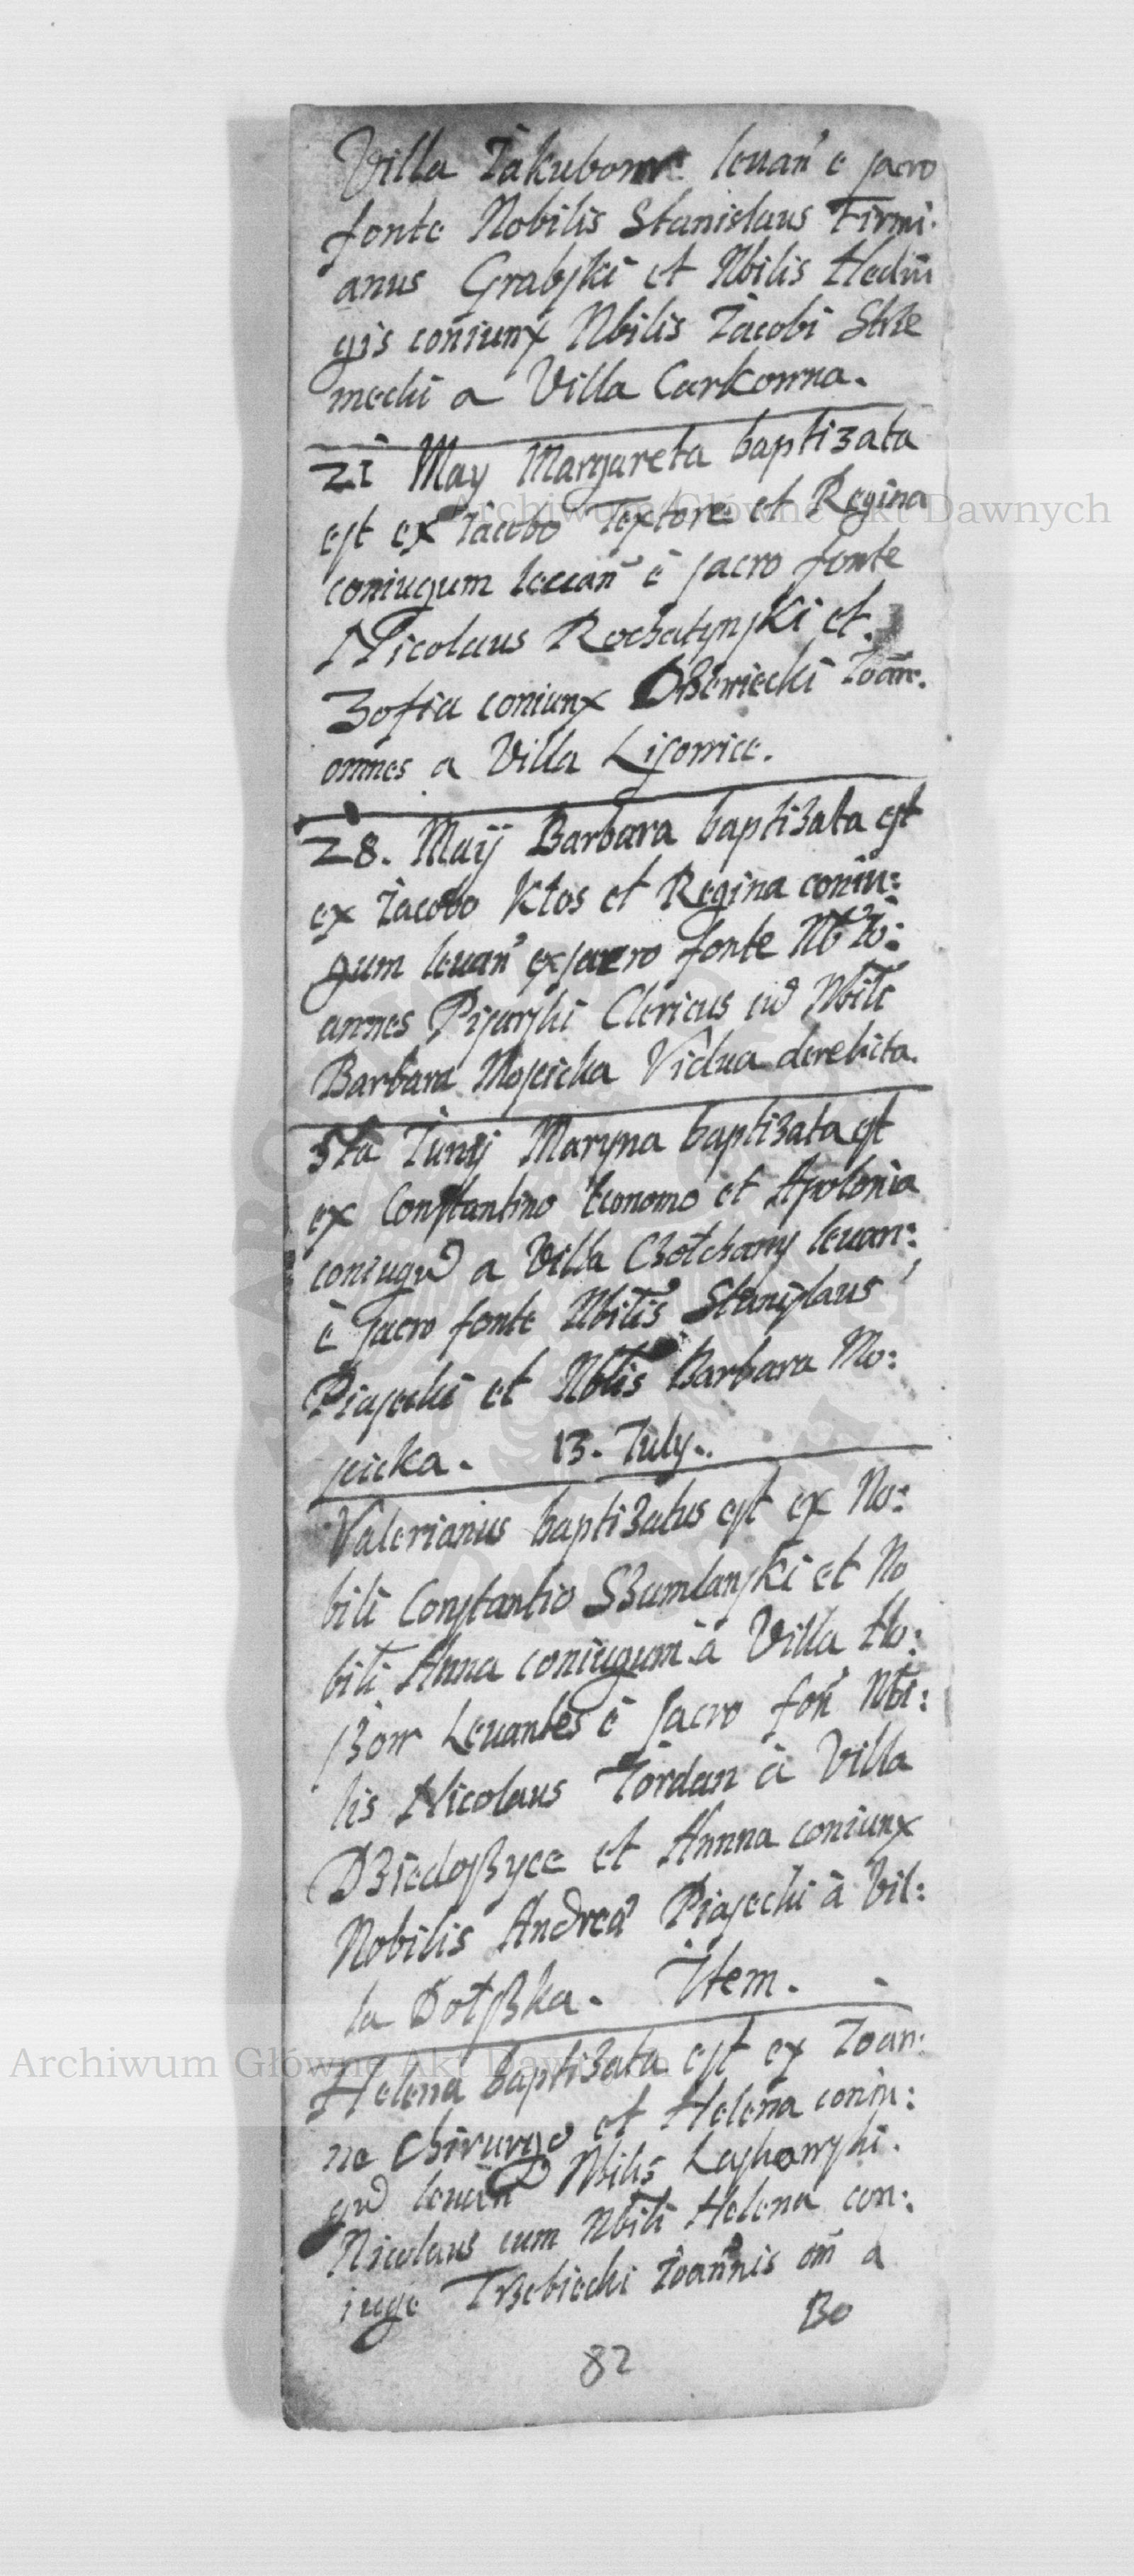 Villa Jakubow levan̄ e sacro
fonte Nobilis Stanislaus Firmi-
anus Grabski et Nbilis Hedui
gis coniunx Nbilis Jacobi Strze
mecki a Villa Carkowna.
21 May Margareta baptizata
est ex Jacobo Textore et Regina
coniugum levan̄ è sacro fonte
Nicolaus Rochatynski et
Zofia coniunx Joan̄.
omnes a Villa Lisowice.
28. Maij Barbara baptizata est
ex Jacobo Kłos et Regina coniu:
gum levan̄ ex sacro fonte Nb Jo:
annes Pisarski Clericus cū Nbile
Barbara Moscicka Vidua derelicta.
5ta Junij Maryna baptizata est
ex Constantino Economo et Apolonia
coniugū a Villa Czołchany levan:
è sacro fonte Nbilis Stanislaus
Piasecki et Nblis Barbara Mo:
scicka. 13. July.
Valerianus baptizatus est ex No:
bili Constantio Szumlanski et No
bili Anna coniugum à Villa Ho:
szow Levantes è sacro fon̄ Nbi:
lis Nicolaus Jordan à Villa
Dziedoszyce et Annna coniunx
Nobilis Andreæ Piasecki à Vil:
la Dołszka. Item.
Helena baptizata est ex Joan:
ne Chirurgo et Helena coniu:
gū levan̄ Nbilis Laskowski
Nicolaus cum Nbili Helena con:
iuge Trzebiecki Joannis om̄ a
Bo
82
Archiwum Główne Akt Dawnych
Archiwum Główne Akt Dawnych